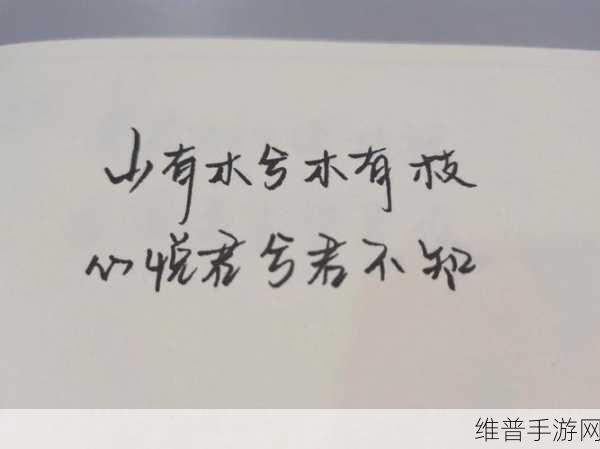 山有木兮木有枝
心悦君兮君不知
维普手游网